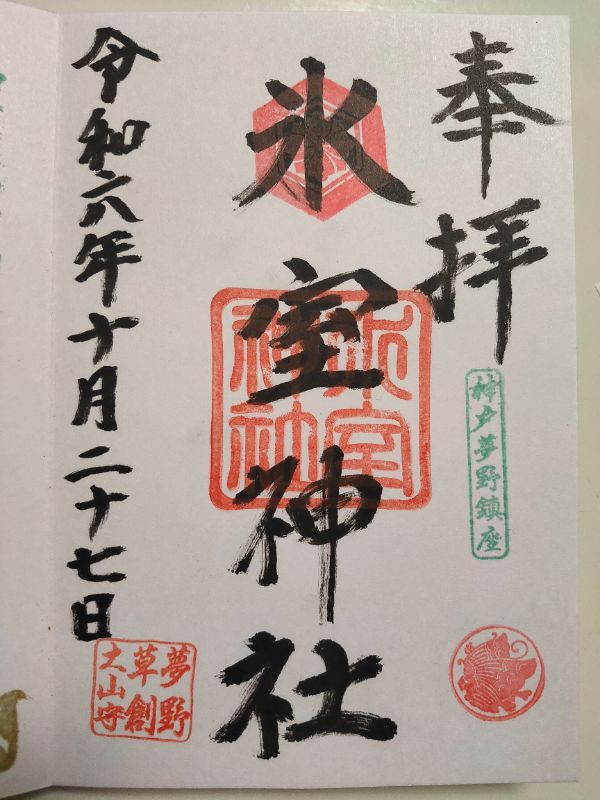 奉拝
神戸夢野鎮座
氷室神社
氷室
神社
令和六年十月二十七日
夢野
草創
大山守